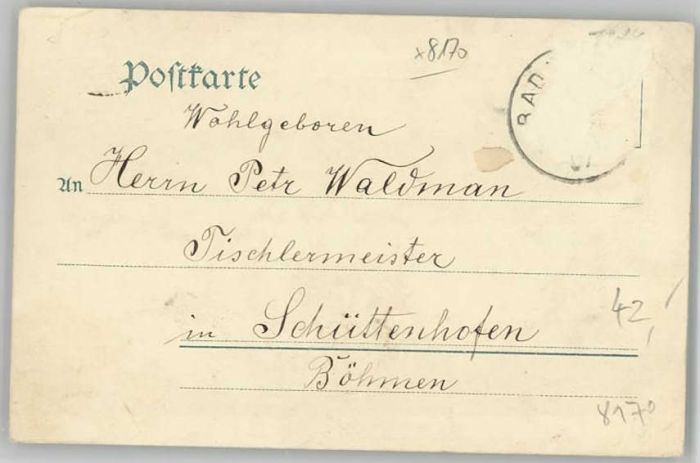 x8170
Postkarte
BAD
Wohlgeboren
An Herrn Petr Waldman
Tischlermeister
in Schüttenhofen
42,
Böhmen
8170